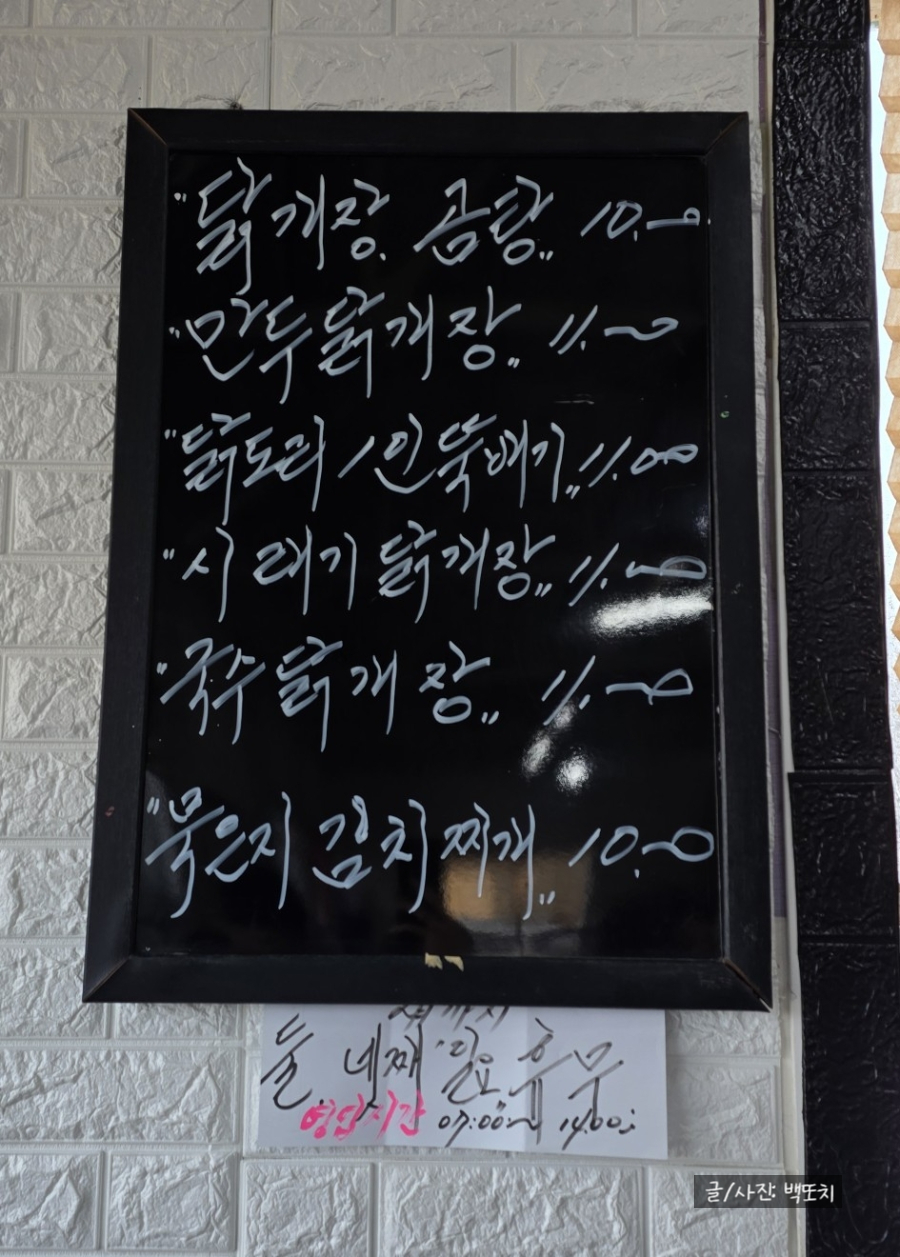 "닭개장. 곰탕" 10.-0.
"만두닭개장" 11.-0
"닭도리 1인 뚝배기" 11.00
"시래기 닭개장" 11.-0
"국수 닭개장" 11.-0
"묵은지 김치찌개" 10.-0
둘. 네째 일요 휴무
영업시간 07:00~ 14:00:
글/사진: 백또치